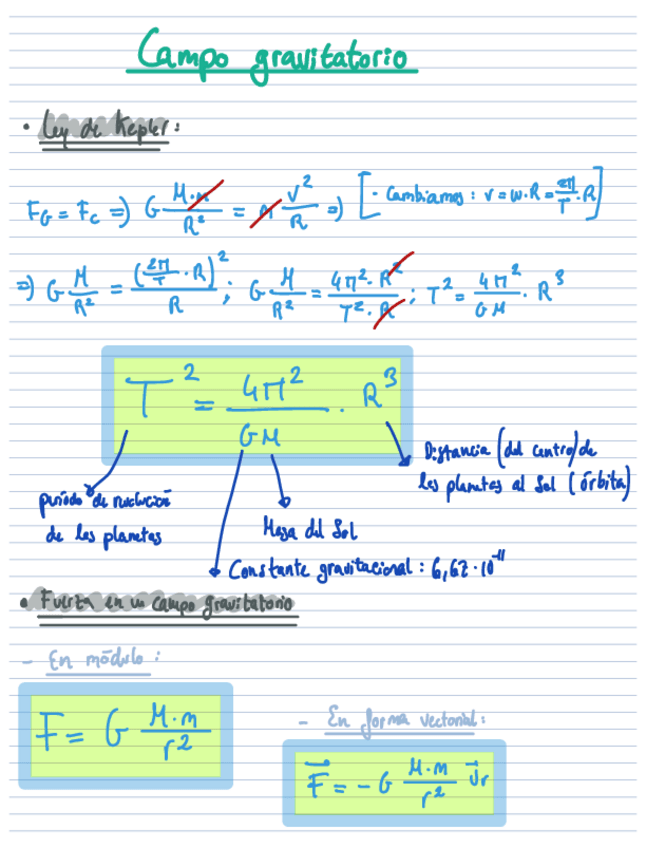 Campo gravitatorio
• Ley de Kepler:
F_G = F_c => G M·m/R² = m v²/R => [- Cambiamos: v = w·R = 2π/T · R]
=> G M/R² = (2π/T · R)²/R ; G M/R² = 4π²·R²/T²·R ; T² = 4π²/GM · R³
T² = 4π²/GM · R³
Distancia (del centro) de
los planetas al Sol (órbita)
período de revolución
de los planetas
Masa del Sol
Constante gravitacional: 6,67·10⁻¹¹
• Fuerza en un campo gravitatorio
- En módulo:
F = G M·m/r²
- En forma vectorial:
F⃗ = - G M·m/r² U⃗r